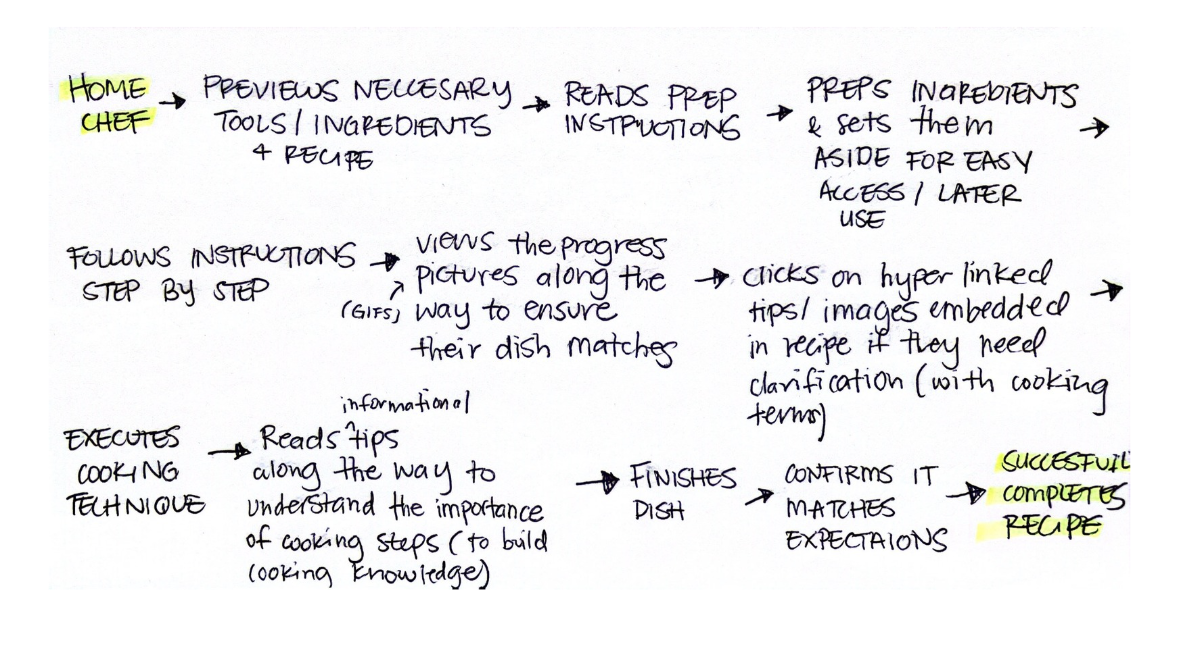 HOME
CHEF
→ PREVIEWS NECCESARY
TOOLS / INGREDIENTS
+ RECIPE
→ READS PREP
INSTRUCTIONS
→ PREPS INGREDIENTS
& sets them
ASIDE FOR EASY
ACCESS / LATER
USE
→
FOLLOWS INSTRUCTIONS
STEP BY STEP
→ views the progress
pictures along the
(GIFS) way to ensure
their dish matches
→ clicks on hyper linked
tips/ images embedded
in recipe if they need
clarification (with cooking
terms)
→
EXECUTES
COOKING
TECHNIQUE
informational
→ Reads ^ tips
along the way to
understand the importance
of cooking steps (to build
cooking knowledge)
→ FINISHES
DISH
→ CONFIRMS IT
MATCHES
EXPECTAIONS
→ SUCCESFULL
COMPLETES
RECIPE